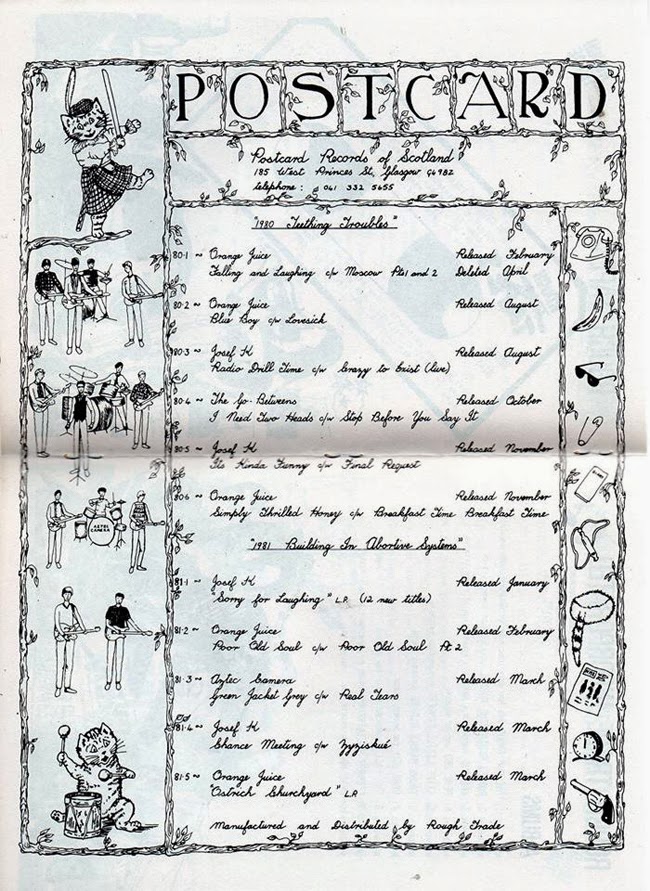 POSTCARD
Postcard Records of Scotland
185 West Princes St, Glasgow G4 9BZ
telephone: 041 332 5655
"1980 Teething Troubles"
80·1 ~ Orange Juice Released February
Falling and Laughing c/w Moscow Pts 1 and 2 Deleted April
80·2 ~ Orange Juice Released August
Blue Boy c/w Lovesick
80·3 ~ Josef K Released August
Radio Drill Time c/w Crazy to Exist (live)
80·4 ~ The Go-Betweens Released October
I Need Two Heads c/w Stop Before You Say It
80·5 ~ Josef K Released November
Its Kinda Funny c/w Final Request
80·6 ~ Orange Juice Released November
Simply Thrilled Honey c/w Breakfast Time Breakfast Time
AZTEC CAMERA
"1981 Building In Abortive Systems"
81·1 ~ Josef K Released January
"Sorry for Laughing" L.P. (12 new titles)
81·2 ~ Orange Juice Released February
Poor Old Soul c/w Poor Old Soul Pt 2
81·3 ~ Aztec Camera Released March
Green Jacket Grey c/w Real Tears
81·4 ~ Josef K Released March
Chance Meeting c/w Zyziskué
81·5 ~ Orange Juice Released March
"Ostrich Churchyard" L.P.
Manufactured and Distributed by Rough Trade